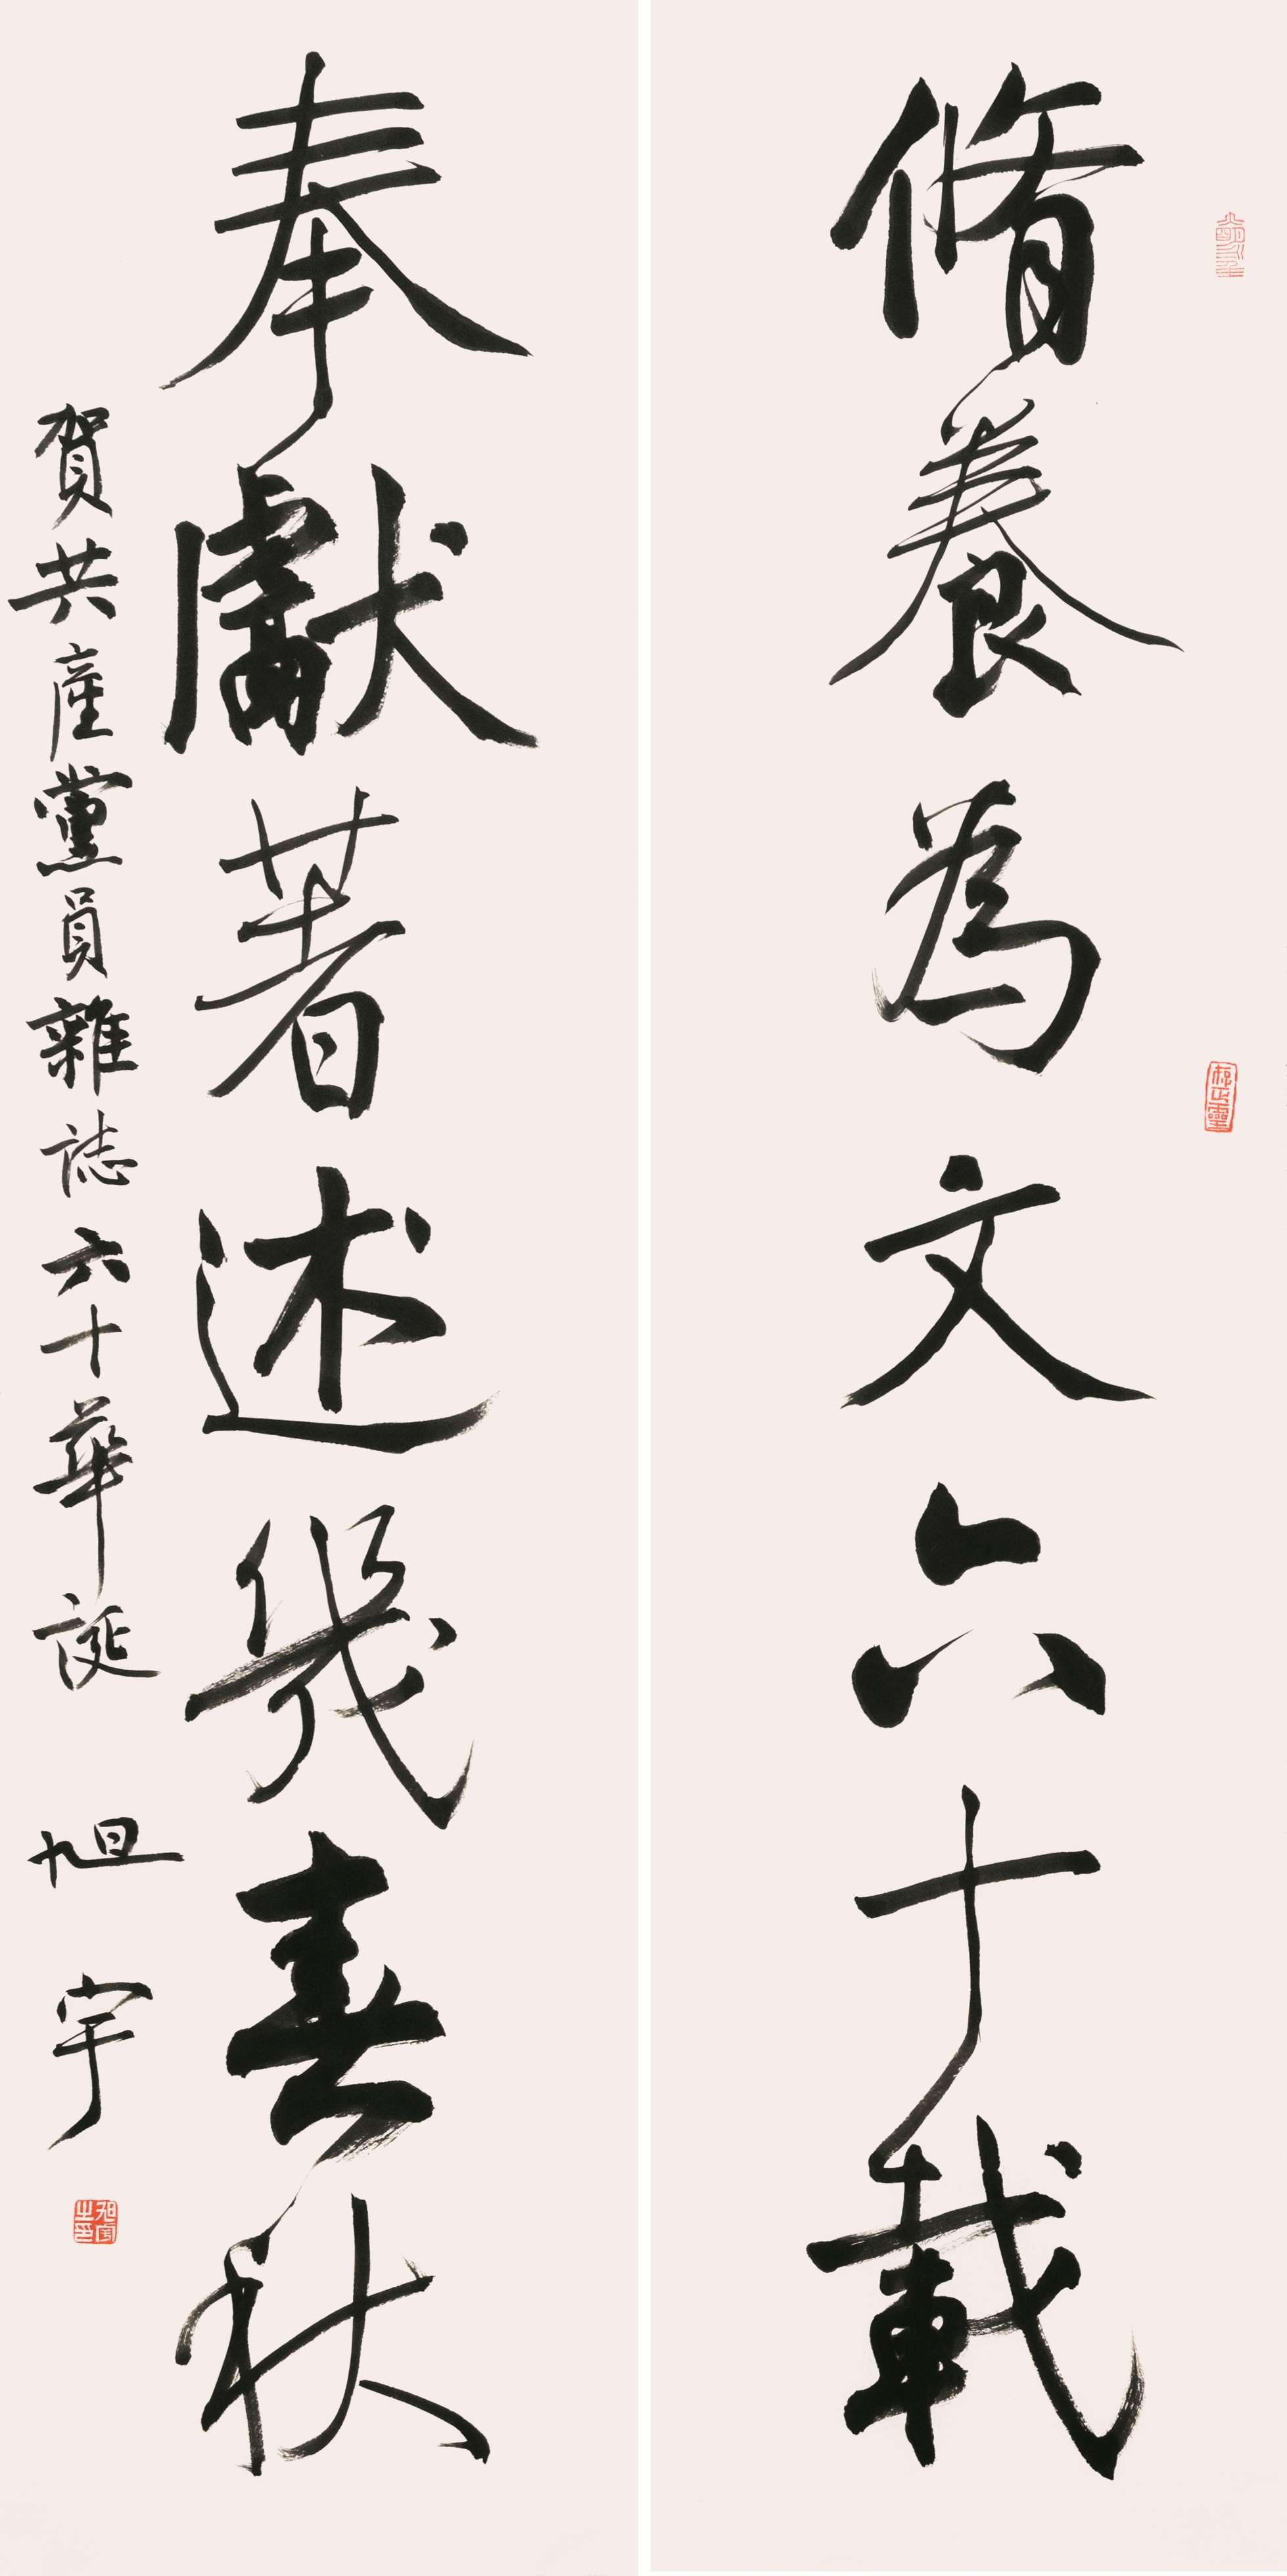 脩養為文六十載
奉獻著述幾春秋
賀共產黨員雜誌六十華誕
旭宇
旭宇之印